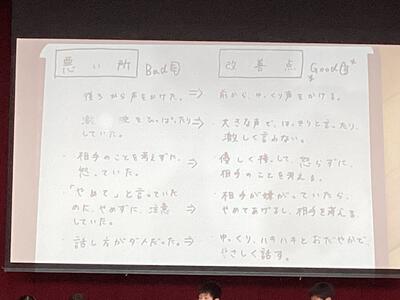 悪い所 Bad
改善点 Good
後ろから声をかけた。 ⇒ 前から、ゆっくり声をかける。
をひっぱったり ⇒ 大きな声で、はっきりと言ったり、
していた。 激しく言わない。
・相手のことを考えずに、 ⇒ 優しく接して、怒らずに、
怒っていた。 相手のことを考える。
・「やめて」と言っていた ⇒ ・相手が嫌がっていたら、
のに、やめずに、注意 やめてあげるし、相手を考える。
していた。
・話し方がダメだった。 ⇒ ・ゆっくり、ハキハキとおだやかで、
やさしく話す。